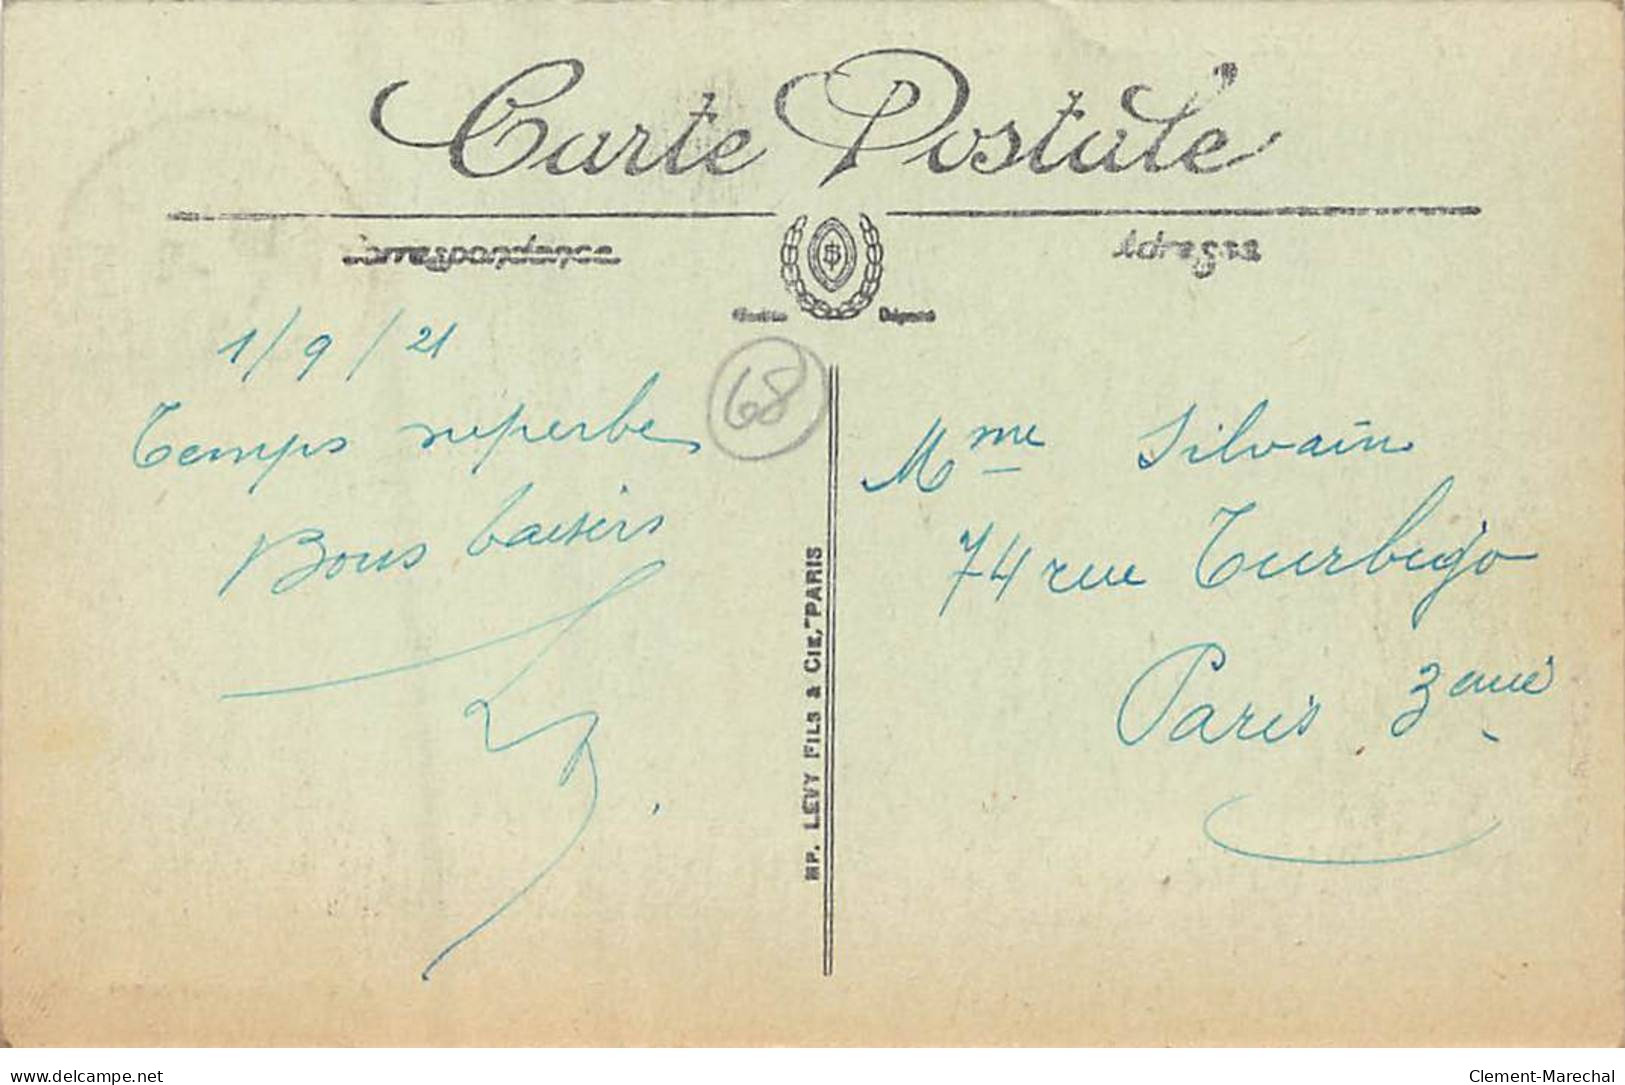 Carte Postale
Correspondance
Adresse
1/9/21
68
Temps superbe
Bons baisers
Mme Silvain
74 rue Turbigo
Paris 3eme
IMP. LÉVY FILS & CIE, PARIS
delcampe.net
Clement-Marechal